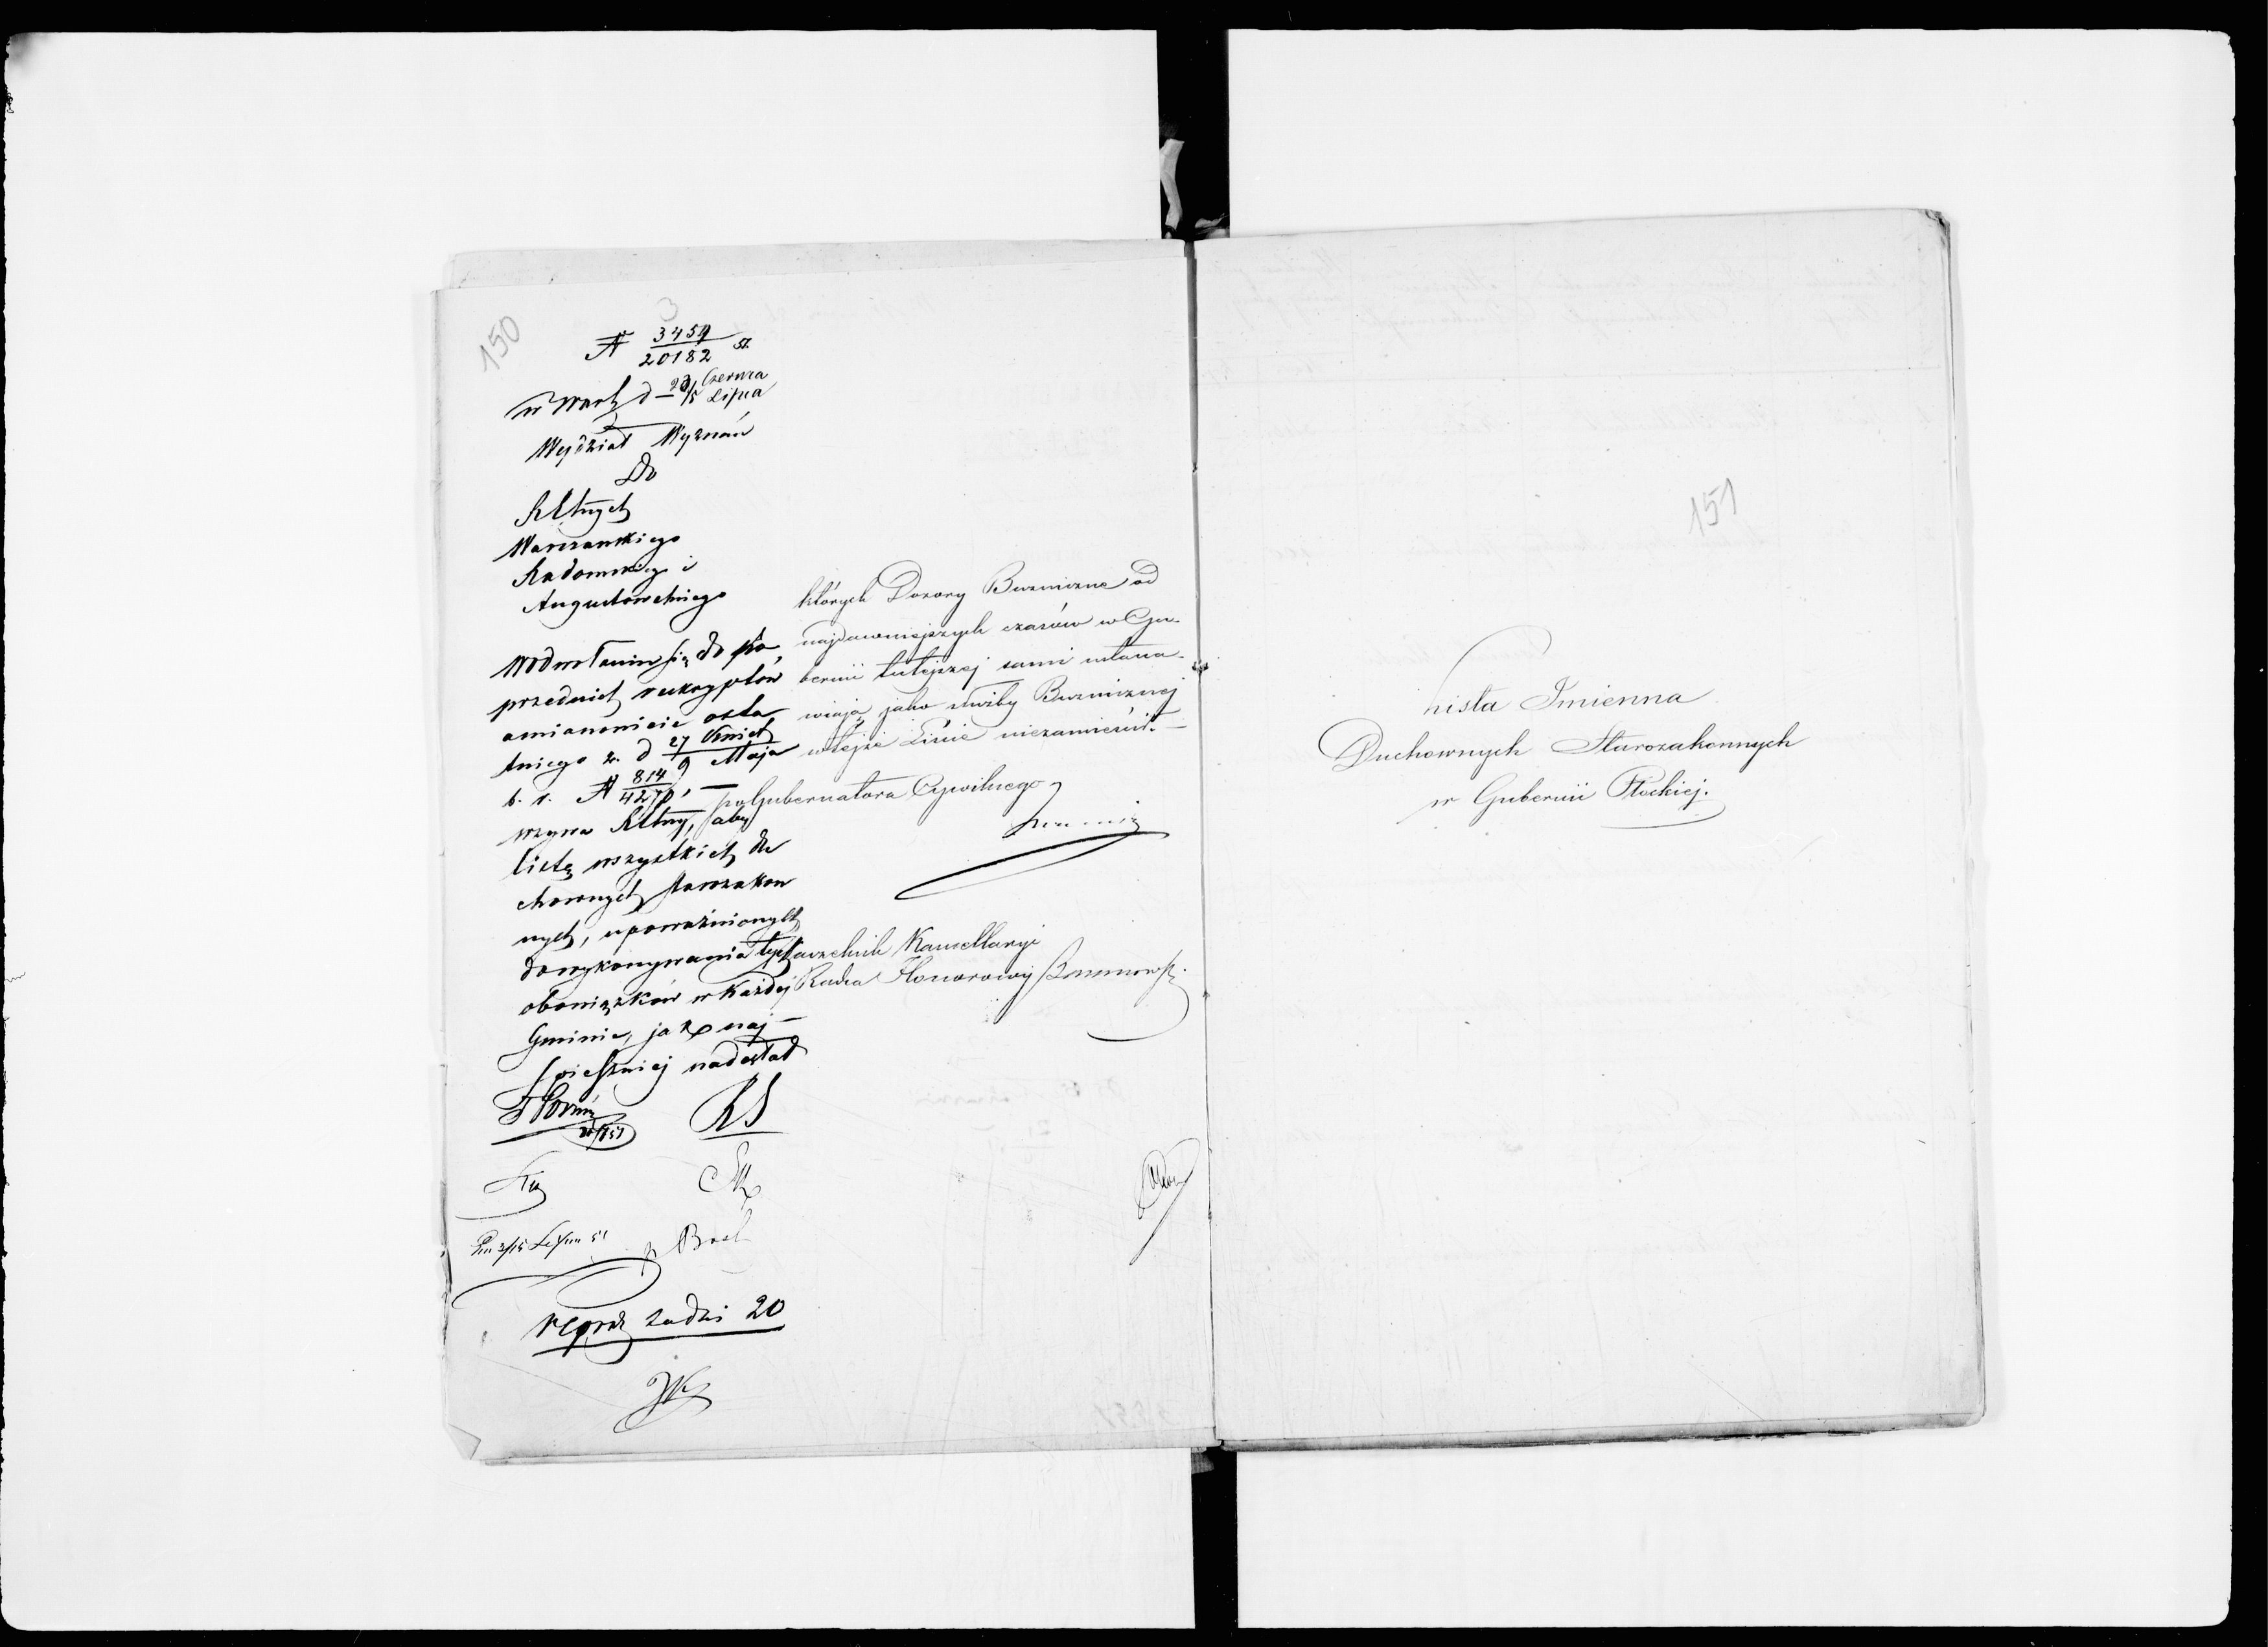 150
3
N 3457/20182 51.
w Warsz d 23/5 Czerwca Lipca
Wydział Wyznań
Do
RGtnych
Warszawskiego
Radomskiego i
Augustowskiego
W odwołaniu się do po
przednich reskryptów
a mianowicie osta
tniego z d 27 Kwiet / 9 Maja
b. r. N 814/4270, —
wzywa RGtny, aby
listę wszystkich du
chownych starozakon
nych, upoważnionych
do wykonywania tych
obowiązków w każdej
Gminie, jak naj-
spieszniej nadesłał
RS
dn 3/15 Lipca 51
za dni 20
których Dozory Bużniczne od
najdawniejszych czasów w Gu-
bernii tutejszej sami ustana-
wiają jako służby Bużnicznej
w tejże Liście niezamieścił. —
po Gubernatora Cywilnego
Naczelnik Kancellaryi
Radca Honorowy
151
Lista Imienna
Duchownych Starozakonnych
w Gubernii Płockiej.